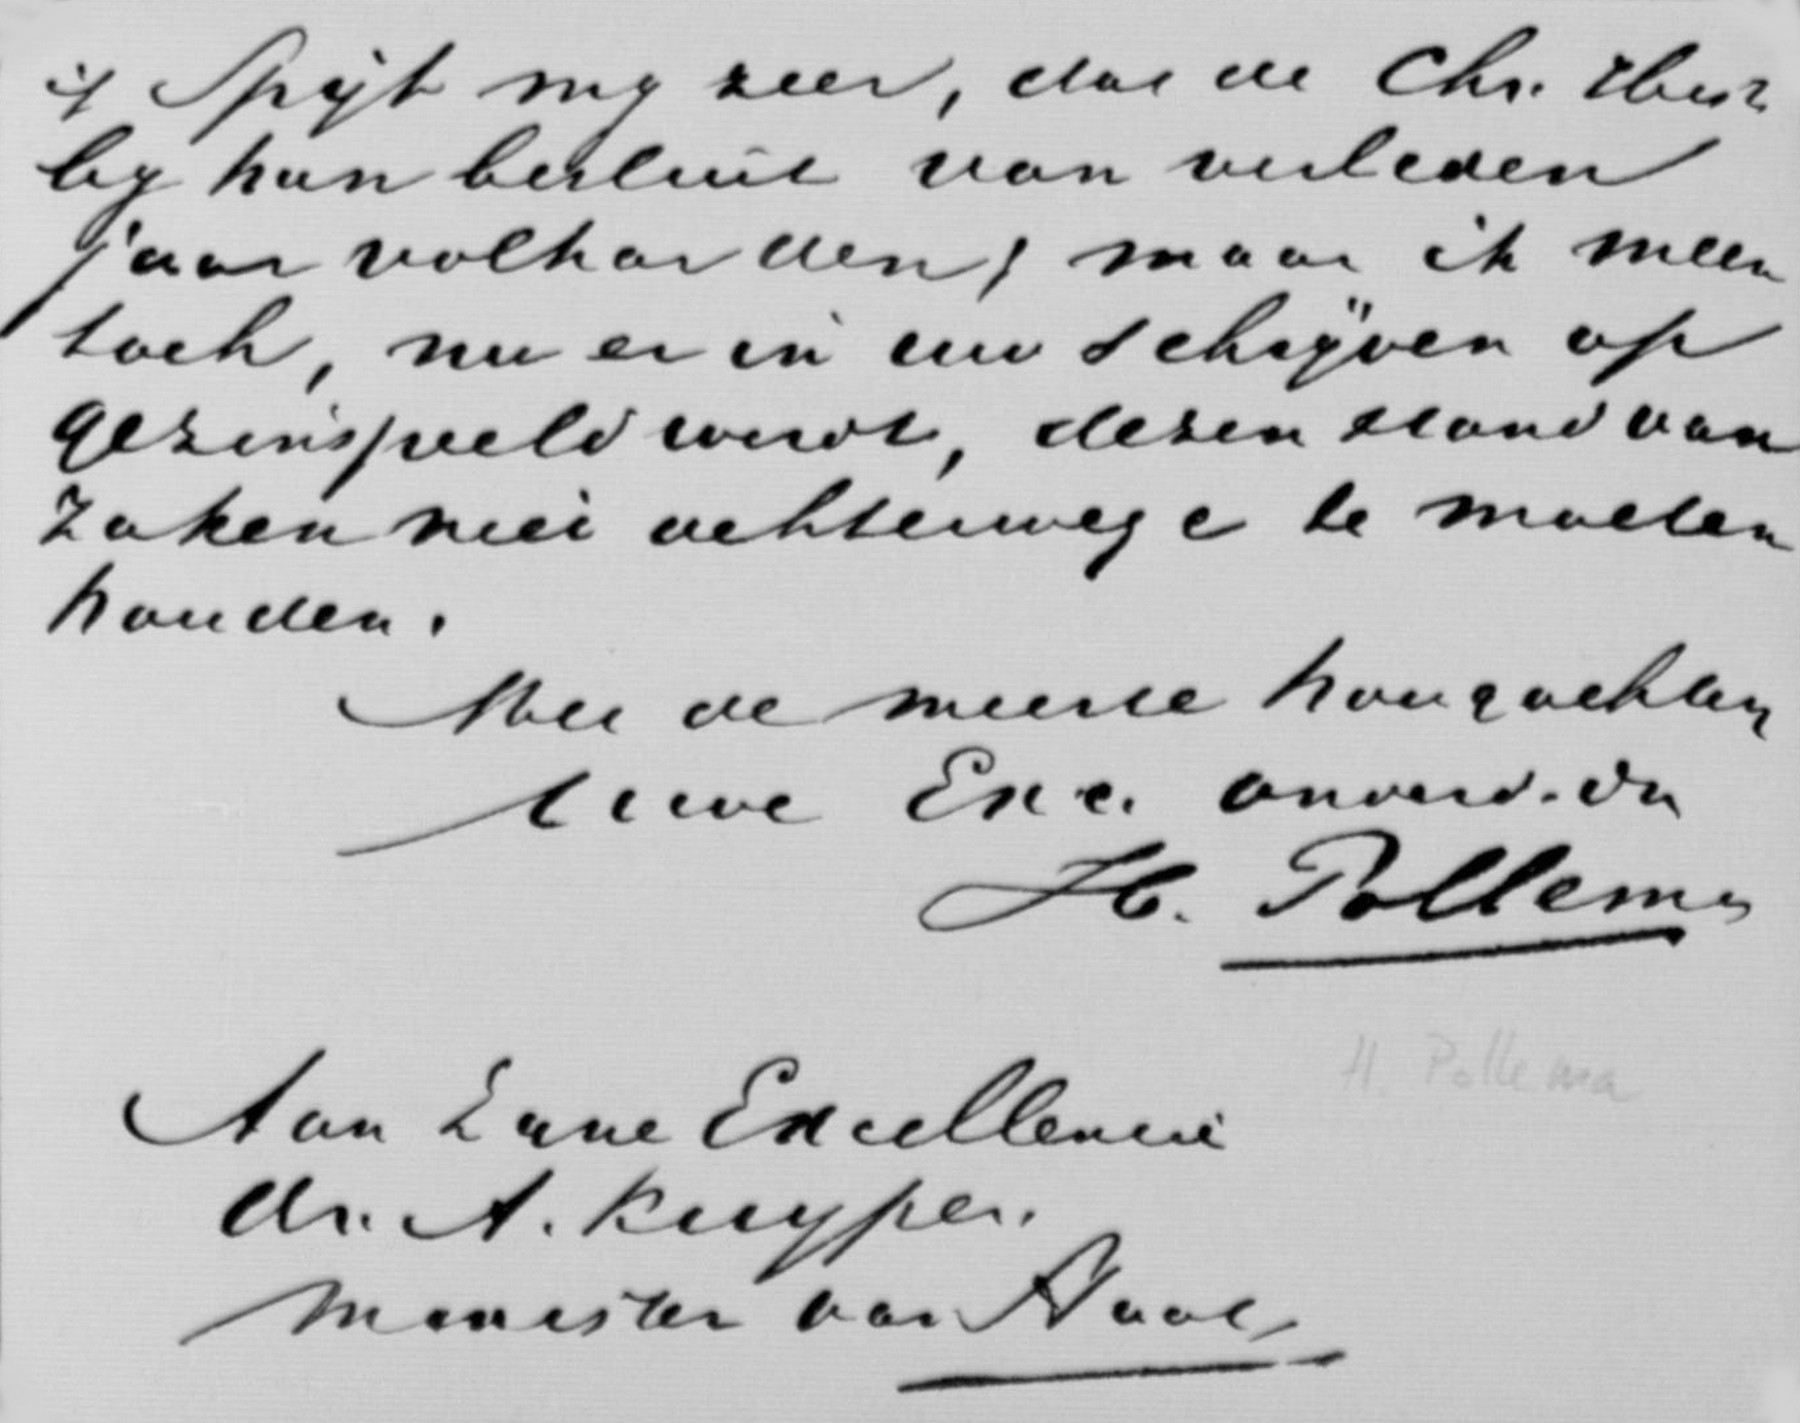 Spijt my zeer, dat de Chr. Hist
by hun besluit van verleden
jaar volharden, maar ik meen
toch, nu er in uw schrijven op
gezinspeeld wordt, dezen stand van
zaken niet achterwege te moeten
houden.
Met de meeste hoogachting
Uwe Exc. onderd. dn
H. Pollema
H. Pollema
Aan Zijne Excellentie
Dr. A. Kuyper.
Minister van Staat